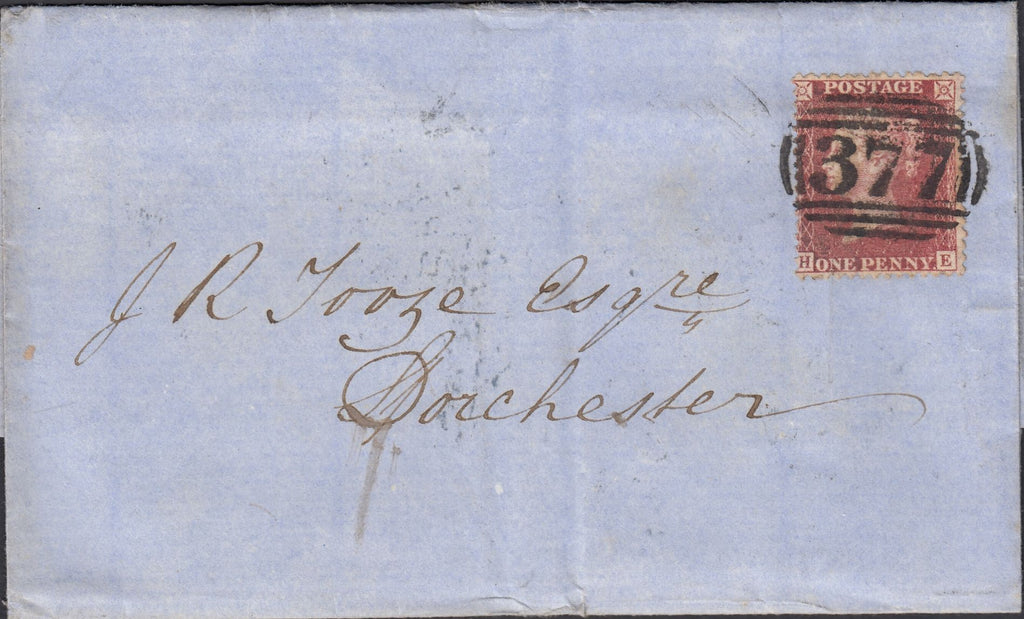 POSTAGE
377
H ONE PENNY E
J R Tooze Esqre
Dorchester